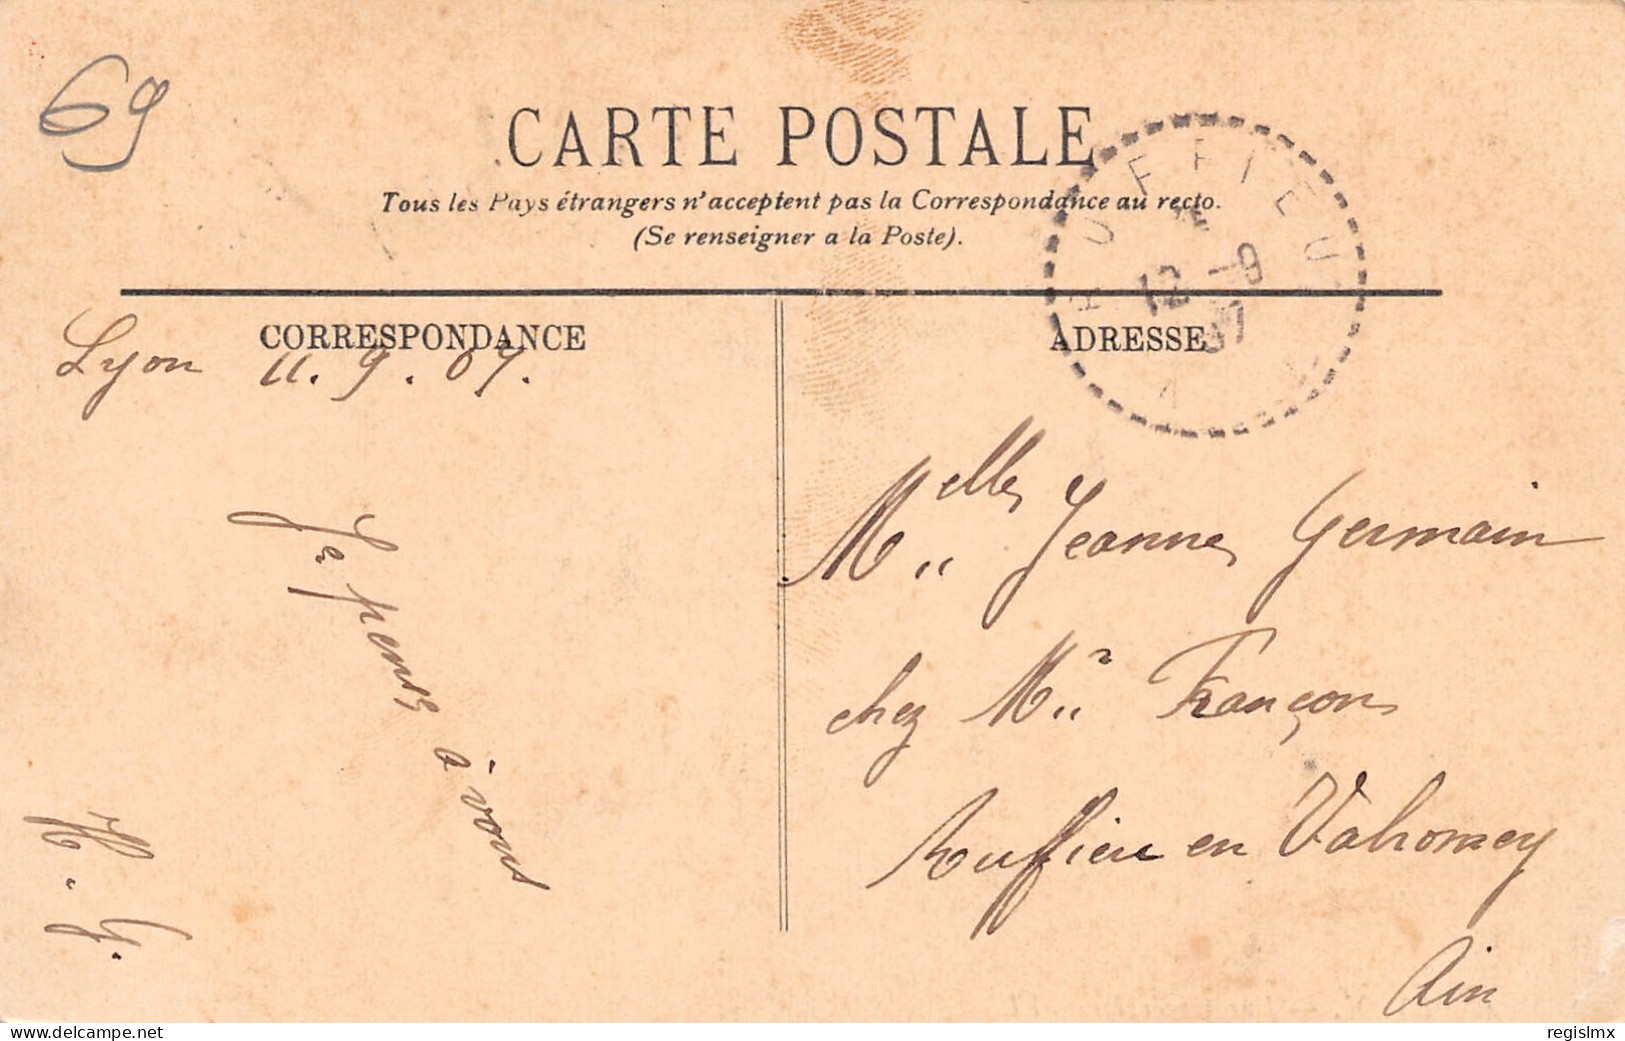 69
CARTE POSTALE
Tous les Pays étrangers n'acceptent pas la Correspondance au recto.
(Se renseigner a la Poste).
RUFFIEU
12 -9
07
CORRESPONDANCE
ADRESSE
Lyon 11.9.07.
Je pense
à vous
H. G.
Melle Jeanne Germain
chez Mr Françon
Ruffieu en Valromey
Ain
www.delcampe.net
regislmx